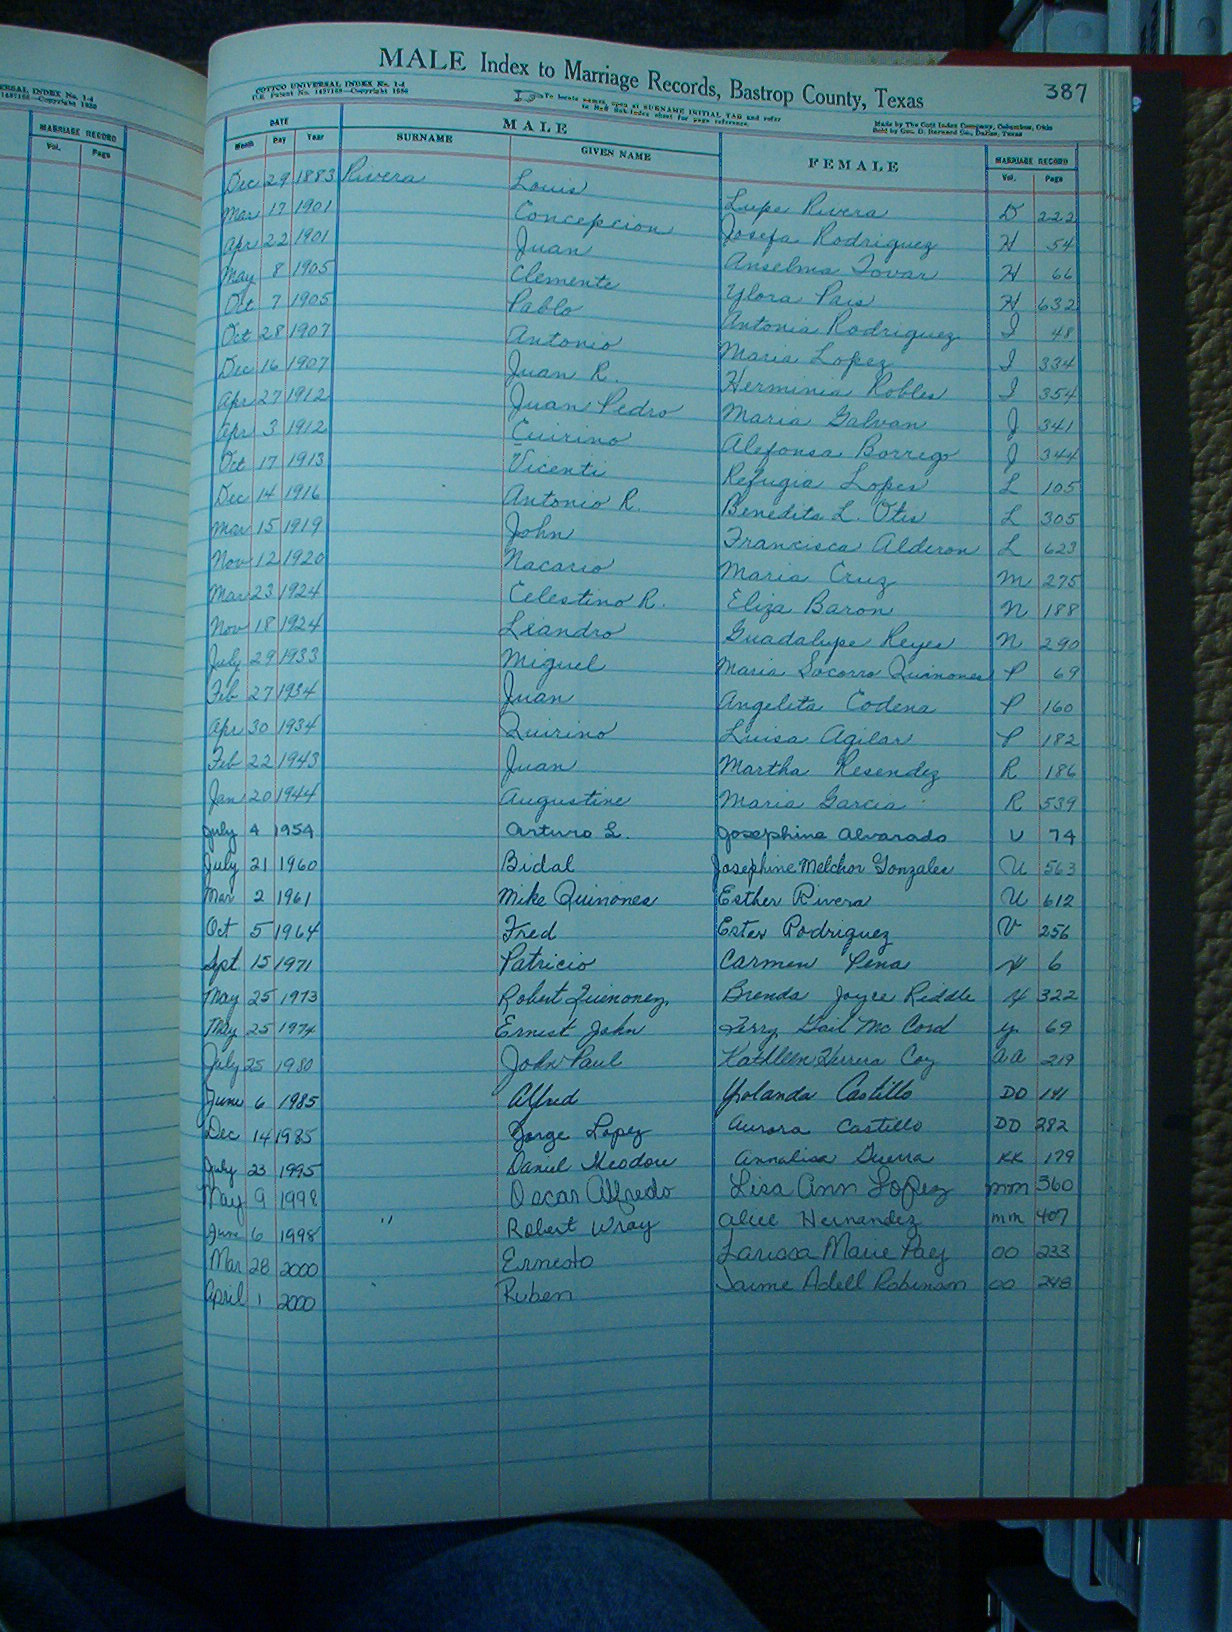 MALE Index to Marriage Records, Bastrop County, Texas 387
COTTCO UNIVERSAL INDEX No. 1-4
U.S. Patent No. 1497168—Copyright 1930
To locate names, open at SURNAME INITIAL TAB and refer
to Red Sub-Index sheet for page reference.
Made by The Cott Index Company, Columbus, Ohio
Sold by Geo. D. Barnard Co., Dallas, Texas
MARRIAGE RECORD
Vol. Page
DATE MALE FEMALE MARRIAGE RECORD
Month Day Year SURNAME GIVEN NAME Vol. Page
Dec 29 1883 Rivera Louis Lupe Rivera D 222
Mar 17 1901 Concepcion Josefa Rodriguez H 54
Apr 22 1901 Juan Anselma Tovar H 66
May 8 1905 Clemente Ylora Pais H 632
Oct 7 1905 Pablo Antonia Rodriguez I 48
Oct 28 1907 Antonio Maria Lopez I 334
Dec 16 1907 Juan R. Herminia Robles I 354
Apr 27 1912 Juan Pedro Maria Galvan J 341
Apr 3 1912 Euirino Alefonsa Borrego J 344
Oct 17 1913 Vicenti Refugia Lopes L 105
Dec 14 1916 Antonio R. Benedita L. Otis L 305
Mar 15 1919 John Francisca Alderon L 623
Nov 12 1920 Nacario Maria Cruz M 275
Mar 23 1924 Celestino R. Eliza Baron N 188
Nov 18 1924 Leandro Guadalupe Reyes N 290
July 29 1933 Miguel Maria Socorro Quinones P 69
Feb 27 1934 Juan Angelita Codena P 160
Apr 30 1934 Quirino Luisa Agilar P 182
Feb 22 1943 Juan Martha Resendez R 186
Jan 20 1944 Augustine Maria Garcia R 539
July 4 1959 Arturo L. Josephine Alvarado U 74
July 21 1960 Bidal Josephine Melchor Gonzales U 563
Mar 2 1961 Mike Quinones Esther Rivera U 612
Oct 5 1964 Fred Ester Rodriguez V 256
Sept 15 1971 Patricio Carmen Pena 6
May 25 1973 Robert Quinonez, Brenda Joyce Riddle 322
May 25 1974 Ernest John Terry Gail McCord y 69
July 25 1980 John Paul Kathleen Herrera Coy AA 219
June 6 1985 Alfred Yolanda Castillo DD 141
Dec 14 1985 Jorge Lopez Aurora Castillo DD 282
July 23 1995 Daniel Meadow Annalisa Guerra KK 179
May 9 1998 Oscar Alfredo Lisa Ann Lopez mm 360
June 6 1998 " Robert Wray Alice Hernandez mm 407
Mar 28 2000 Ernesto Larissa Marie Paez OO 233
April 1 2000 Ruben Jaime Adell Robinson OO 248